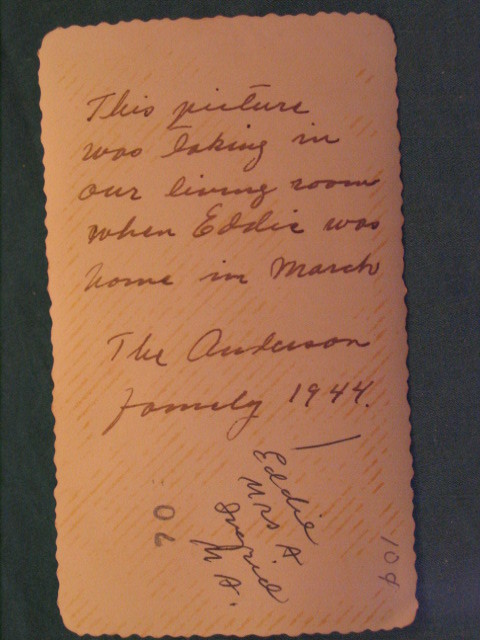 This picture
was taking in
our living room
when Eddie was
home in March
The Anderson
family 1944.
Eddie
Mrs A
Ingrid
M A.
70
109